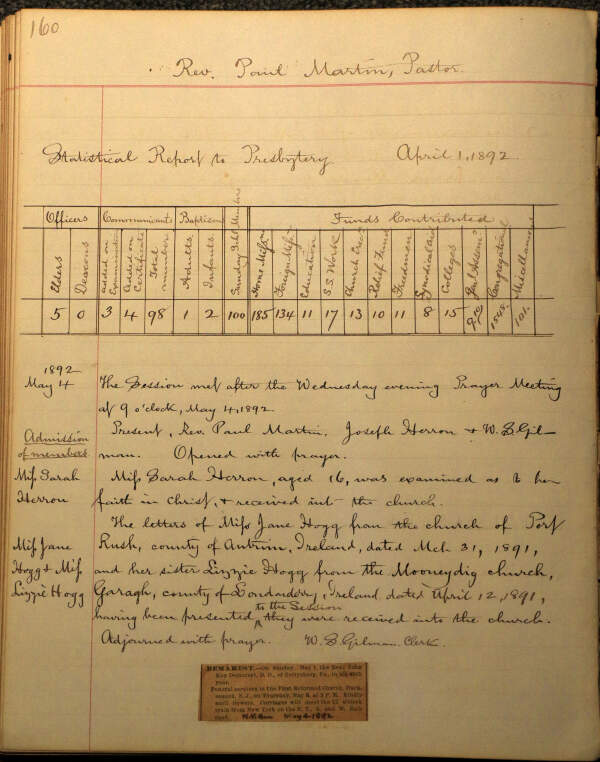 160
Rev. Paul Martin, Pastor.
Statistical Report to Presbytery April 1, 1892
Officers Communicants Baptisms Sunday Schl. Members Funds Contributed
Elders Deacons Added on Examination Added on Certificate Total number Adults Infants Home Miss Foreign Miss Education S.S. Work Church Erec Relief Fund Freedmen Synodical Aid Colleges Gen'l Assem Congregational Miscellaneous
5 0 3 4 98 1 2 100 185 134 11 17 13 10 11 8 15 101.
1892
May 4 The Session met after the Wednesday evening Prayer Meeting
at 9 o'clock, May 4, 1892
Present, Rev. Paul Martin, Joseph Herron & W. S. Gil-
Admission
of members
man. Opened with prayer.
Miss Sarah Miss Sarah Herron, aged 16, was examined as to her
Herron faith in Christ, & received into the church.
The letters of Miss Jane Hogg from the church of Port
Miss Jane Rush, county of Antrim, Ireland, dated Mch 31, 1891,
Hogg & Miss and her sister Lizzie Hogg from the Mooneydig church,
Lizzie Hogg Garagh, county of Londonderry, Ireland dated April 12, 1891,
having been presented to the Session they were received into the church.
Adjourned with prayer. W. S. Gilman Clerk.
DEMAREST.—On Sunday, May 1, the Rev. John
Key Demarest, D. D., of Gettysburg, Pa., in his
year.
Funeral services in the First Reformed Church, Hack-
ensack, N. J., on Thursday, May 5, at 2 P. M. Kindly
omit flowers. Carriages will meet the 12 o'clock
train from New York on the N. Y., S. and W. Rail-
road. May 4-1892